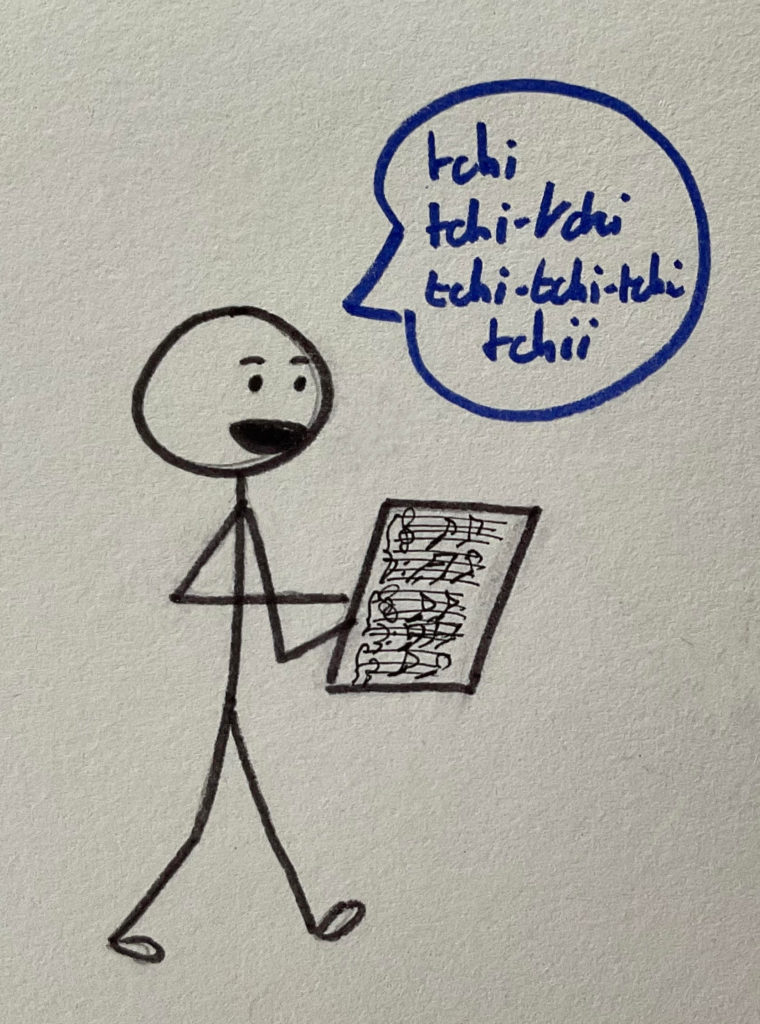 tchi
tchi-tchi
tchi-tchi-tchi
tchii